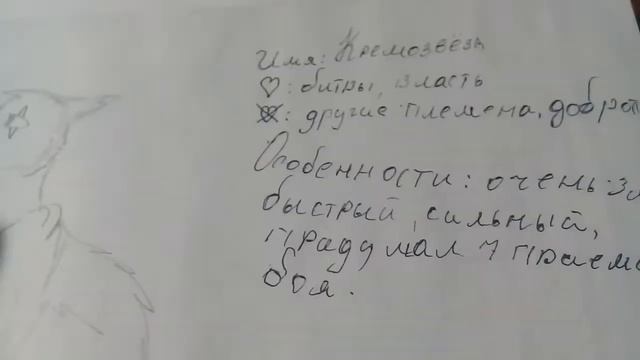 Имя: Кремозвёзд
♡: битвы, власть
другие племена, доброт
Особенности: очень зл
быстрый, сильный,
прадумал 7 приемо
боя.